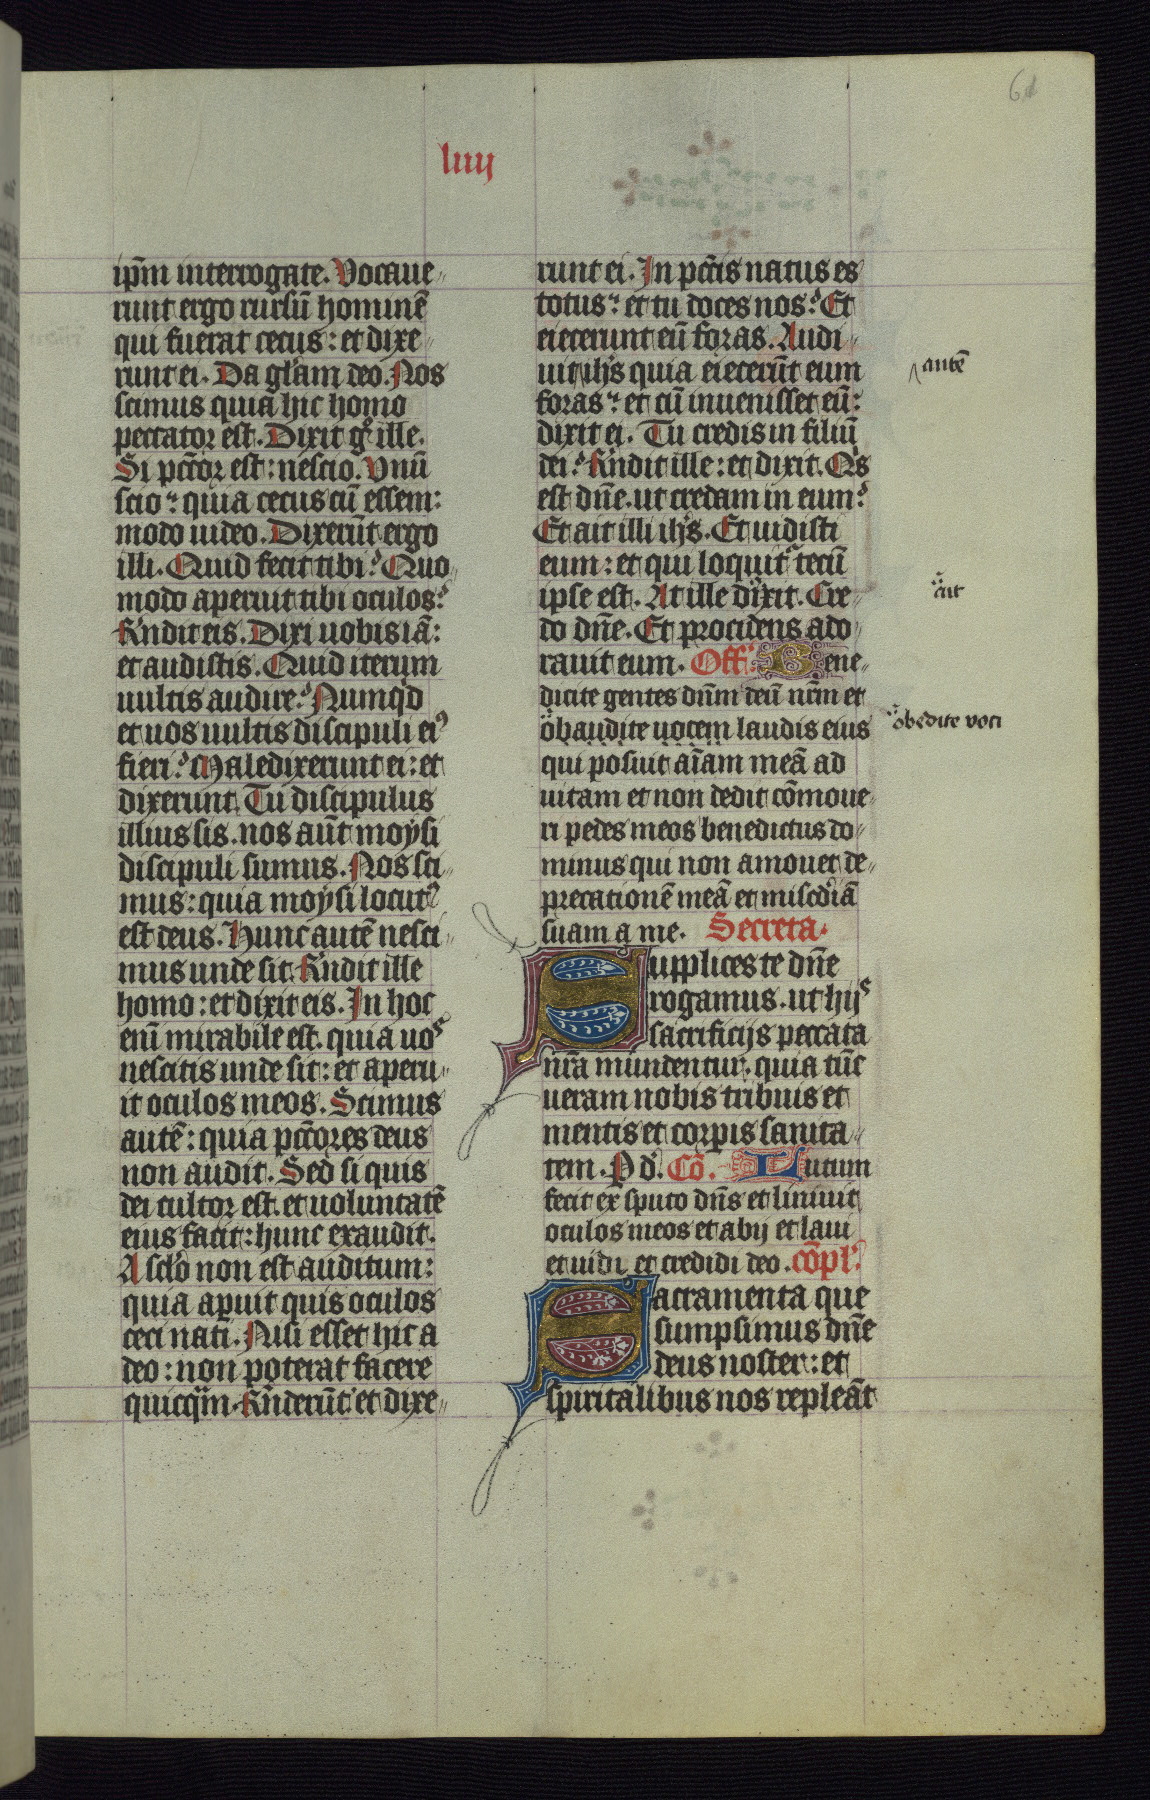 61
liiij
ip̄m interrogate. Vocaue„
runt ergo rursū hominē
qui fuerat cecus: et dixe„
runt ei. Da gl̄am deo. Nos
scimus quia hic homo
peccator est. Dixit gͦ ille.
Si pctōr est: nescio. Vnū
scio: quia cecus cū essem:
modo uideo. Dixerūt ergo
illi. Quid fecit tibi? Quo„
modo aperuit tibi oculos?
Rn̄dit eis. Dixi uobis iā:
et audistis. Quid iterum
uultis audire? Numqͥd
et uos uultis discipuli eiꝰ
fieri? Maledixerunt ei: et
dixerunt. Tu discipulus
illius sis. nos aūt moysi
discipuli sumus. Nos sci„
mus: quia moysi locutꝰ
est deus. Hunc autē nesci„
mus unde sit. Rn̄dit ille
homo: et dixit eis. In hoc
enī mirabile est. quia uos
nescitis unde sit: et aperu„
it oculos meos. Scimus
autē: quia pctōres deus
non audit. Sed si quis
dei cultor est. et uoluntatē
eius facit: hunc exaudit.
A sclo̅ non est auditum:
quia aꝑuit quis oculos
ceci nati. Nisi esset hic a
deo: non poterat facere
quicqͣm. Rn̄derūt et dixe„
runt ei. In pctīs natus es
totus: et tu doces nos? Et
eiecerunt eū foras. Audi„
uit ih̄s quia eiecerūt eum
autē
foras: et cū inuenisset eū:
dixit ei. Tu credis in filiū
dei? Rn̄dit ille: et dixit. Qͥs
est dn̄e. ut credam in eum?
Et ait illi ih̄s. Et uidisti
eum: et qui loquitᷣ tecū
ipse est. At ille dixit. Cre„
ait
do dn̄e. Et procidens ado„
rauit eum. Off̄. Bene„
dicite gentes dn̄m deū nr̄m et
obaudite uocem laudis eius
obedite voci
qui posuit aīam meā ad
uitam et non dedit cōmoue„
ri pedes meos benedictus do„
minus qui non amouet de„
precationē meā et miscd̄iā
suam a me. Secreta.
Supplices te dn̄e
rogamus. ut hijs
sacrificijs peccata
nr̄a mundentur. quia tūc
ueram nobis tribuis et
mentis et corꝑis sanita„
tem. P d. Cō. Lutum
fecit ex sputo dn̄s et liniuit
oculos meos et abij et laui
et uidi et credidi deo. cōpl.
Sacramenta que
sumpsimus dn̄e
deus noster: et
spiritalibus nos repleāt